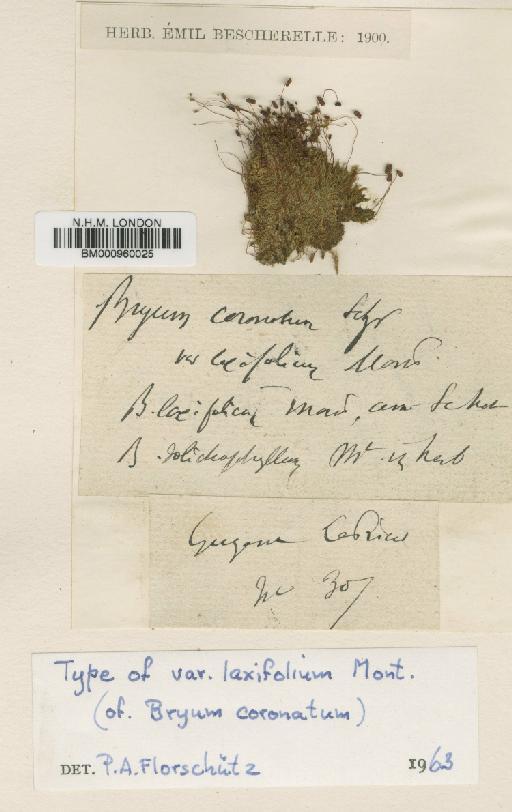 HERB. ÉMIL BESCHERELLE: 1900.
N.H.M. LONDON
BM000960025
Bryum coronatum Schw
var laxifolium Mont.
B. laxifolium Mont,
B. dolichophyllum Mt. in herb
Guyane Leprieur
No 307
Type of var. laxifolium Mont.
(of. Bryum coronatum)
DET. P.A. Florschütz 1963